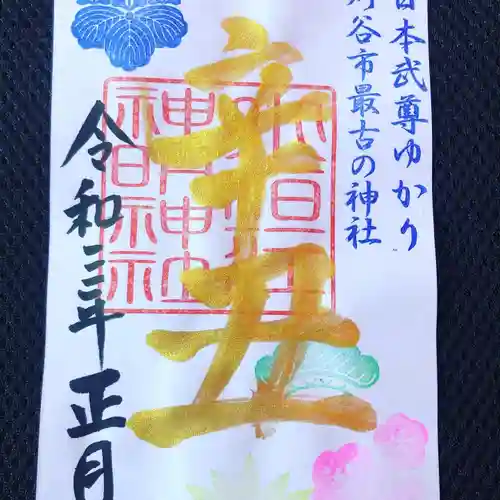 日本武尊ゆかり
刈谷市最古の神社
辛丑
令和三年正月